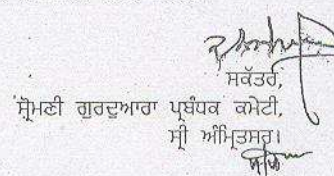 ਸਕੱਤਰ,
ਸ਼੍ਰੋਮਣੀ ਗੁਰਦੁਆਰਾ ਪ੍ਰਬੰਧਕ ਕਮੇਟੀ,
ਸ੍ਰੀ ਅੰਮ੍ਰਿਤਸਰ।